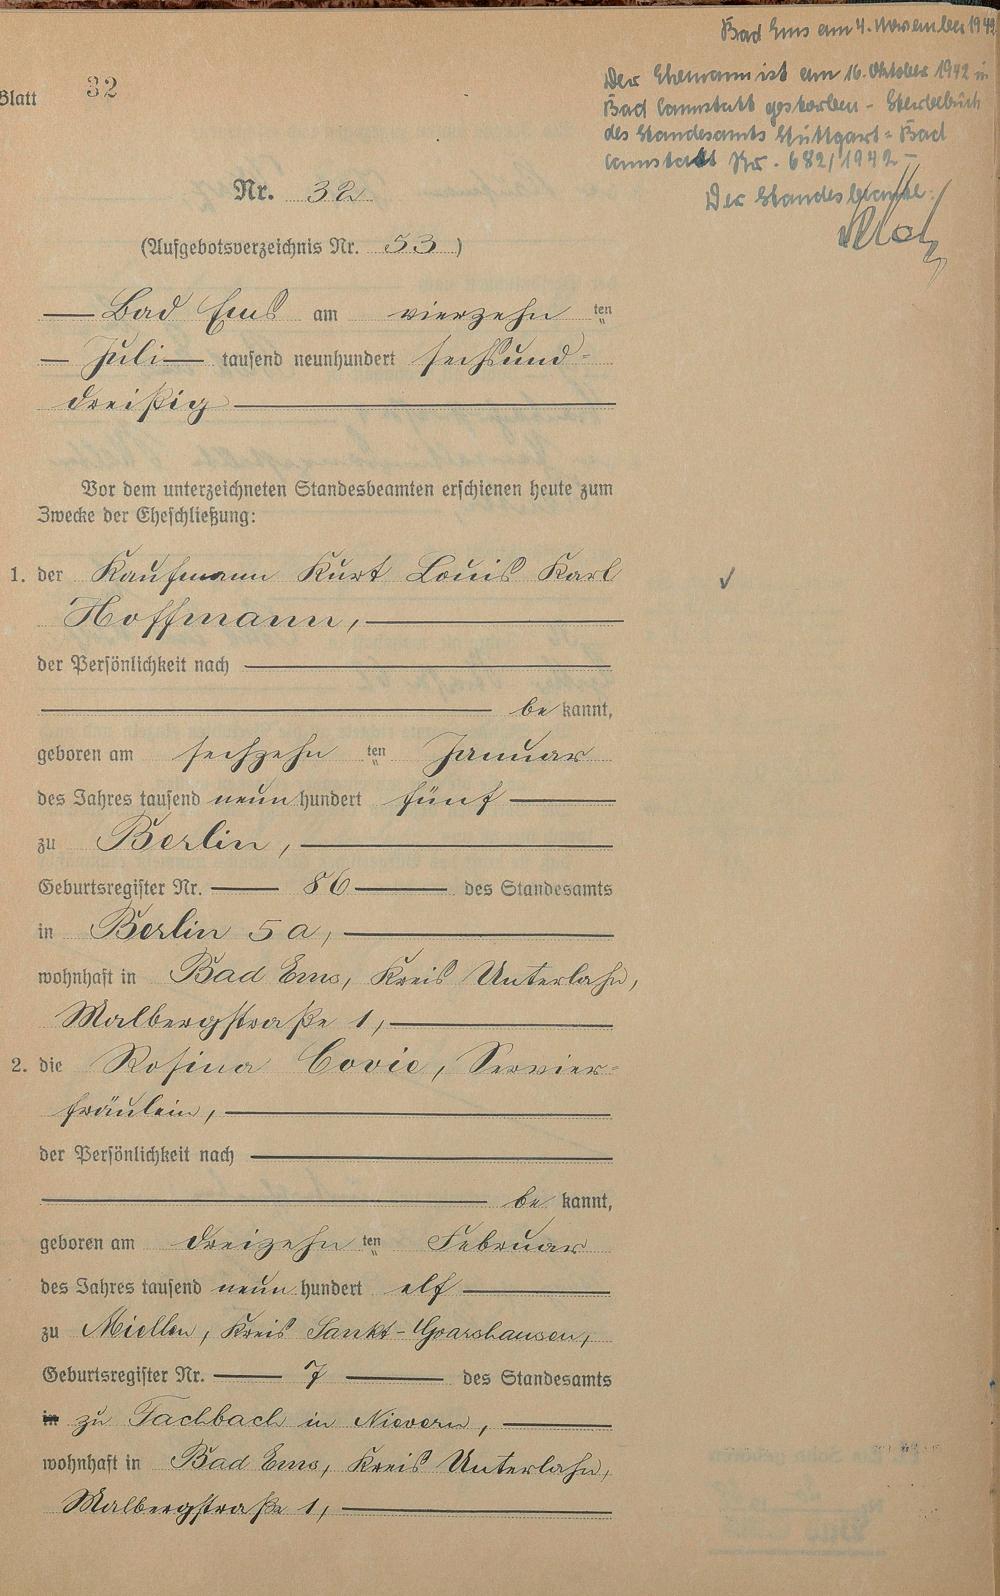 Bad Ems am 4. November 1942
Der Ehemann ist am 16. Oktober 1942 in
Bad Cannstatt gestorben - Sterbebuch
des Standesamts Stuttgart = Bad
Cannstatt Nr. 682/1942 -
Der Standesbeamte:
Blatt 32
Nr. 32
(Aufgebotsverzeichnis Nr. 53)
Bad Ems am vierzehn ten
Juli tausend neunhundert sechsund-
dreißig
Vor dem unterzeichneten Standesbeamten erschienen heute zum
Zwecke der Eheschließung:
1. der Kaufmann Kurt Louis Karl
Hoffmann,
der Persönlichkeit nach
be kannt,
geboren am sechzehn ten Januar
des Jahres tausend neun hundert fünf
zu Berlin,
Geburtsregister Nr. 86 des Standesamts
in Berlin 5a,
wohnhaft in Bad Ems, Kreis Unterlahn,
Malbergstraße 1,
2. die Rosina Covie, Servier-
fräulein,
der Persönlichkeit nach
be kannt,
geboren am dreizehn ten Februar
des Jahres tausend neun hundert elf
zu Miellen, Kreis Sankt-Goarshausen,
Geburtsregister Nr. 7 des Standesamts
in zu Fachbach in Nievern,
wohnhaft in Bad Ems, Kreis Unterlahn,
Malbergstraße 1,